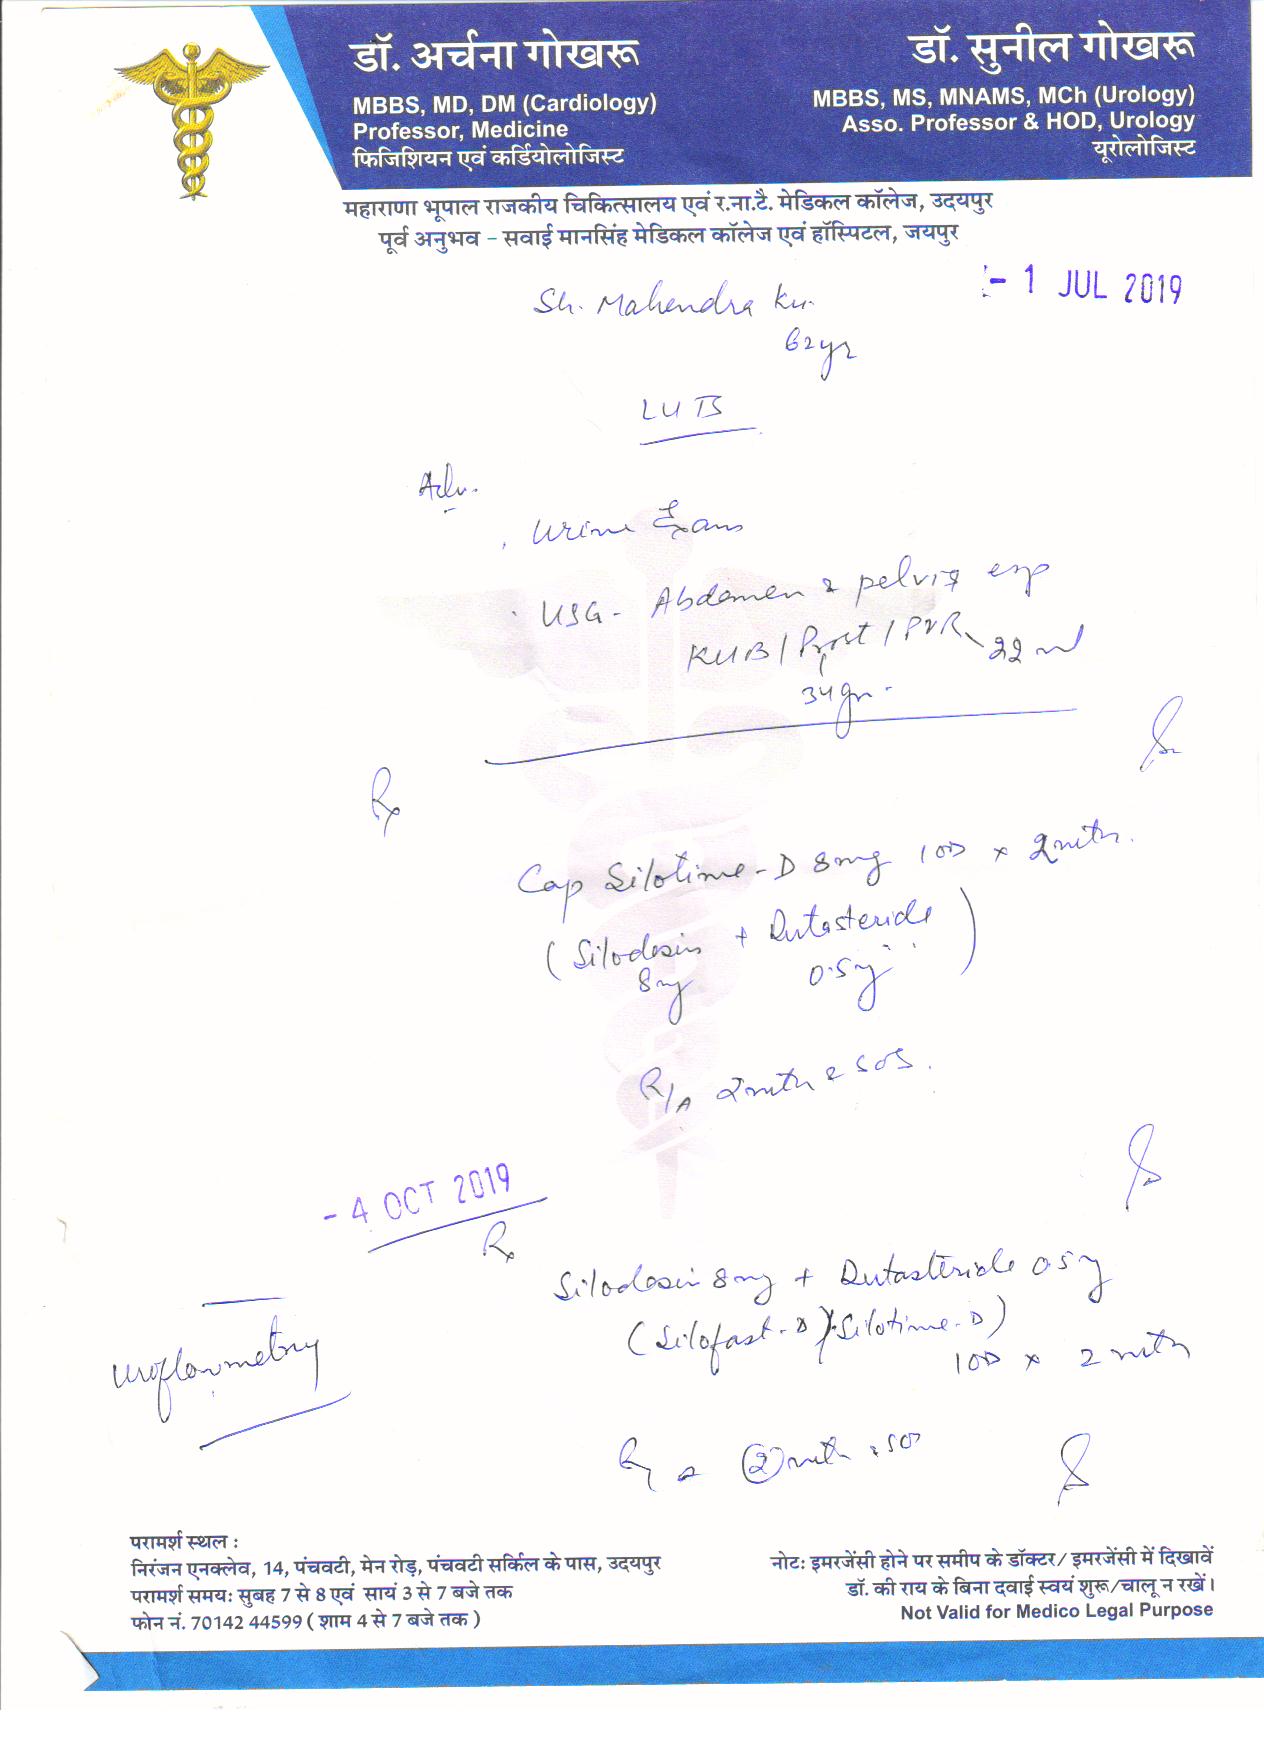 डॉ. अर्चना गोखरू
MBBS, MD, DM (Cardiology)
Professor, Medicine
फिजिशियन एवं कार्डियोलोजिस्ट
डॉ. सुनील गोखरू
MBBS, MS, MNAMS, MCh (Urology)
Asso. Professor & HOD, Urology
यूरोलोजिस्ट
महाराणा भूपाल राजकीय चिकित्सालय एवं र.ना.टै. मेडिकल कॉलेज, उदयपुर
पूर्व अनुभव - सवाई मानसिंह मेडिकल कॉलेज एवं हॉस्पिटल, जयपुर
- 1 JUL 2019
Sh. Mahendra Ku.
62yr
LUTS
Adv.
Urine Exam
USG - Abdomen & pelvis esp
KUB / Prost / PVR 22 ml
34gm.
Rx
Cap Silotime-D 8mg 1OD x 2mth.
(Silodosin + Dutasteride)
8mg 0.5mg
R/A 2mth & SOS.
- 4 OCT 2019
Rx
Silodosin 8mg + Dutasteride 0.5mg
(Silofast-D / Silotime-D)
1OD x 2 mth
Uroflowmetry
2 mth
परामर्श स्थल :
निरंजन एनक्लेव, 14, पंचवटी, मेन रोड़, पंचवटी सर्किल के पास, उदयपुर
परामर्श समय: सुबह 7 से 8 एवं सायं 3 से 7 बजे तक
फोन नं. 70142 44599 ( शाम 4 से 7 बजे तक )
नोट: इमरजेंसी होने पर समीप के डॉक्टर/ इमरजेंसी में दिखावें
डॉ. की राय के बिना दवाई स्वयं शुरू/चालू न रखें।
Not Valid for Medico Legal Purpose